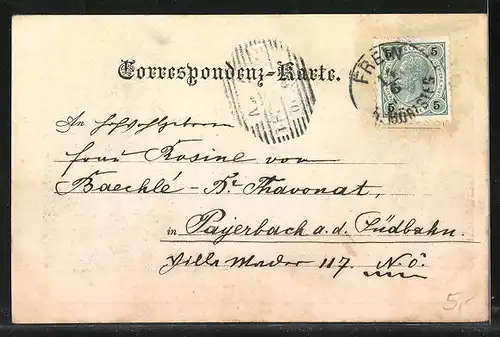 Correspondenz-Karte.
5 5
5 5
An Hochwohlgeboren
Frau Rosine von
Baechlé-Br Thavonat,
in Payerbach a. d. Südbahn.
Villa Mader 117. N. Ö.
5,-